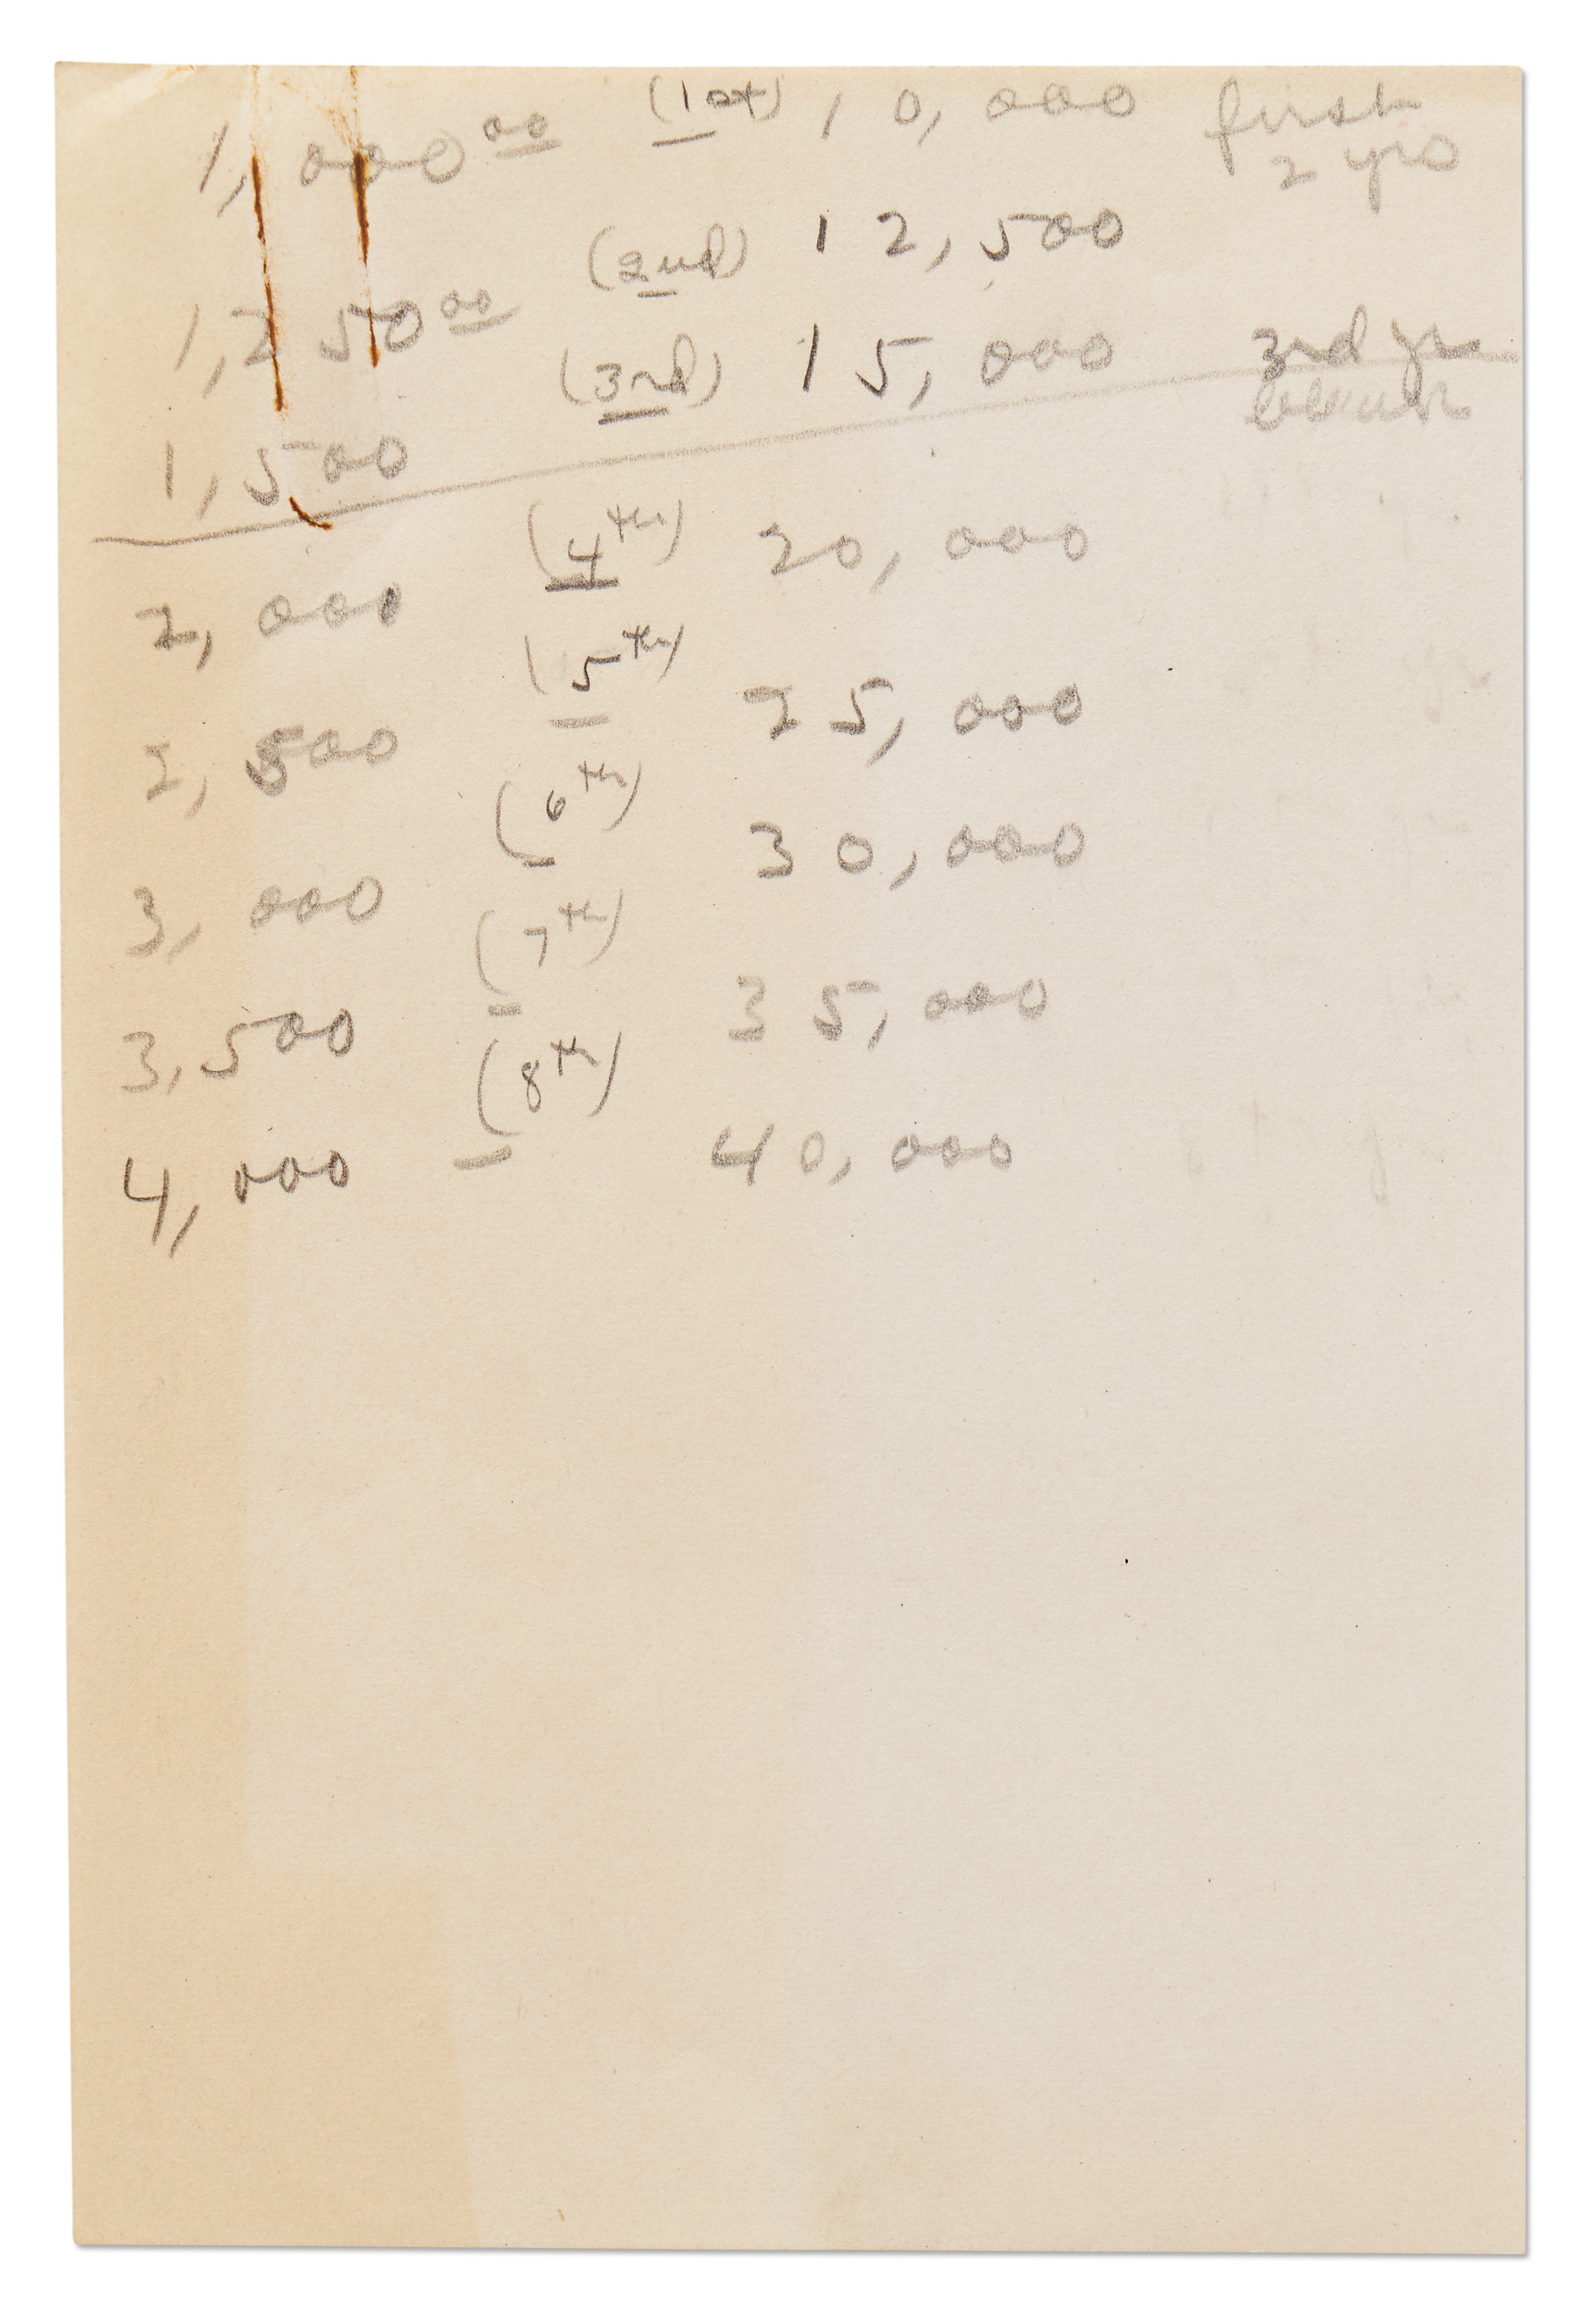 1,000 00 (1st) 10,000 first
2 yrs
1,250 00 (2nd) 12,500
1,500 (3rd) 15,000 3rd yr
2,000 (4th) 20,000
2,500 (5th) 25,000
3,000 (6th) 30,000
3,500 (7th) 35,000
4,000 (8th) 40,000